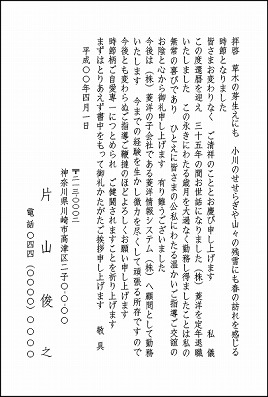 拝啓 草木の芽生えにも 小川のせせらぎや山々の残雪にも春の訪れを感じる
時節となりました
皆さまお変わりなく ご清祥のこととお慶び申し上げます 私儀
この度還暦を迎え 三十五年の間お世話になりました（株）菱洋を定年退職
いたしました この永きにわたる歳月を大過なく勤務し得ましたことは私の
無常の喜びであり ひとえに皆さまの公私にわたる温かいご指導ご交誼の
お陰と心から御礼申し上げます 有り難うございました
今後は（株）菱洋の子会社である菱洋情報システム（株）へ顧問として勤務
いたします 今までの経験を生かし微力を尽くして頑張る所存ですので
今後とも変わらぬご指導ご鞭撻のほどよろしくお願い申し上げます
時節柄ご自愛専一につとめられ ご健闘されますことを祈り上げます
まずはとりあえず書中をもって御礼かたがたご挨拶申し上げます 敬具
平成〇〇年四月一日
〒二一三-〇〇〇二
神奈川県川崎市高津区二子〇-〇-〇〇
片山俊之
電話〇四四（〇〇〇）〇〇〇〇